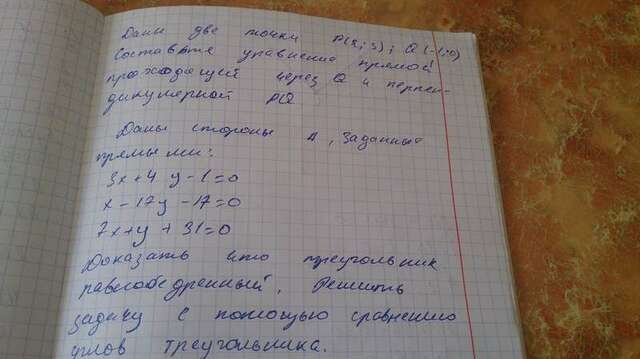 Даны две точки P(2; 3) ; Q(-1; 0)
Составьте уравнение прямой
проходящий через Q и перпен-
дикулярной PQ
Даны стороны Δ, заданные
прямыми:
3x+4y-1=0
x-17y-17=0
7x+y+31=0
Доказать что треугольник
равнобедренный. Решить
задачу с помощью сравнения
углов треугольника.